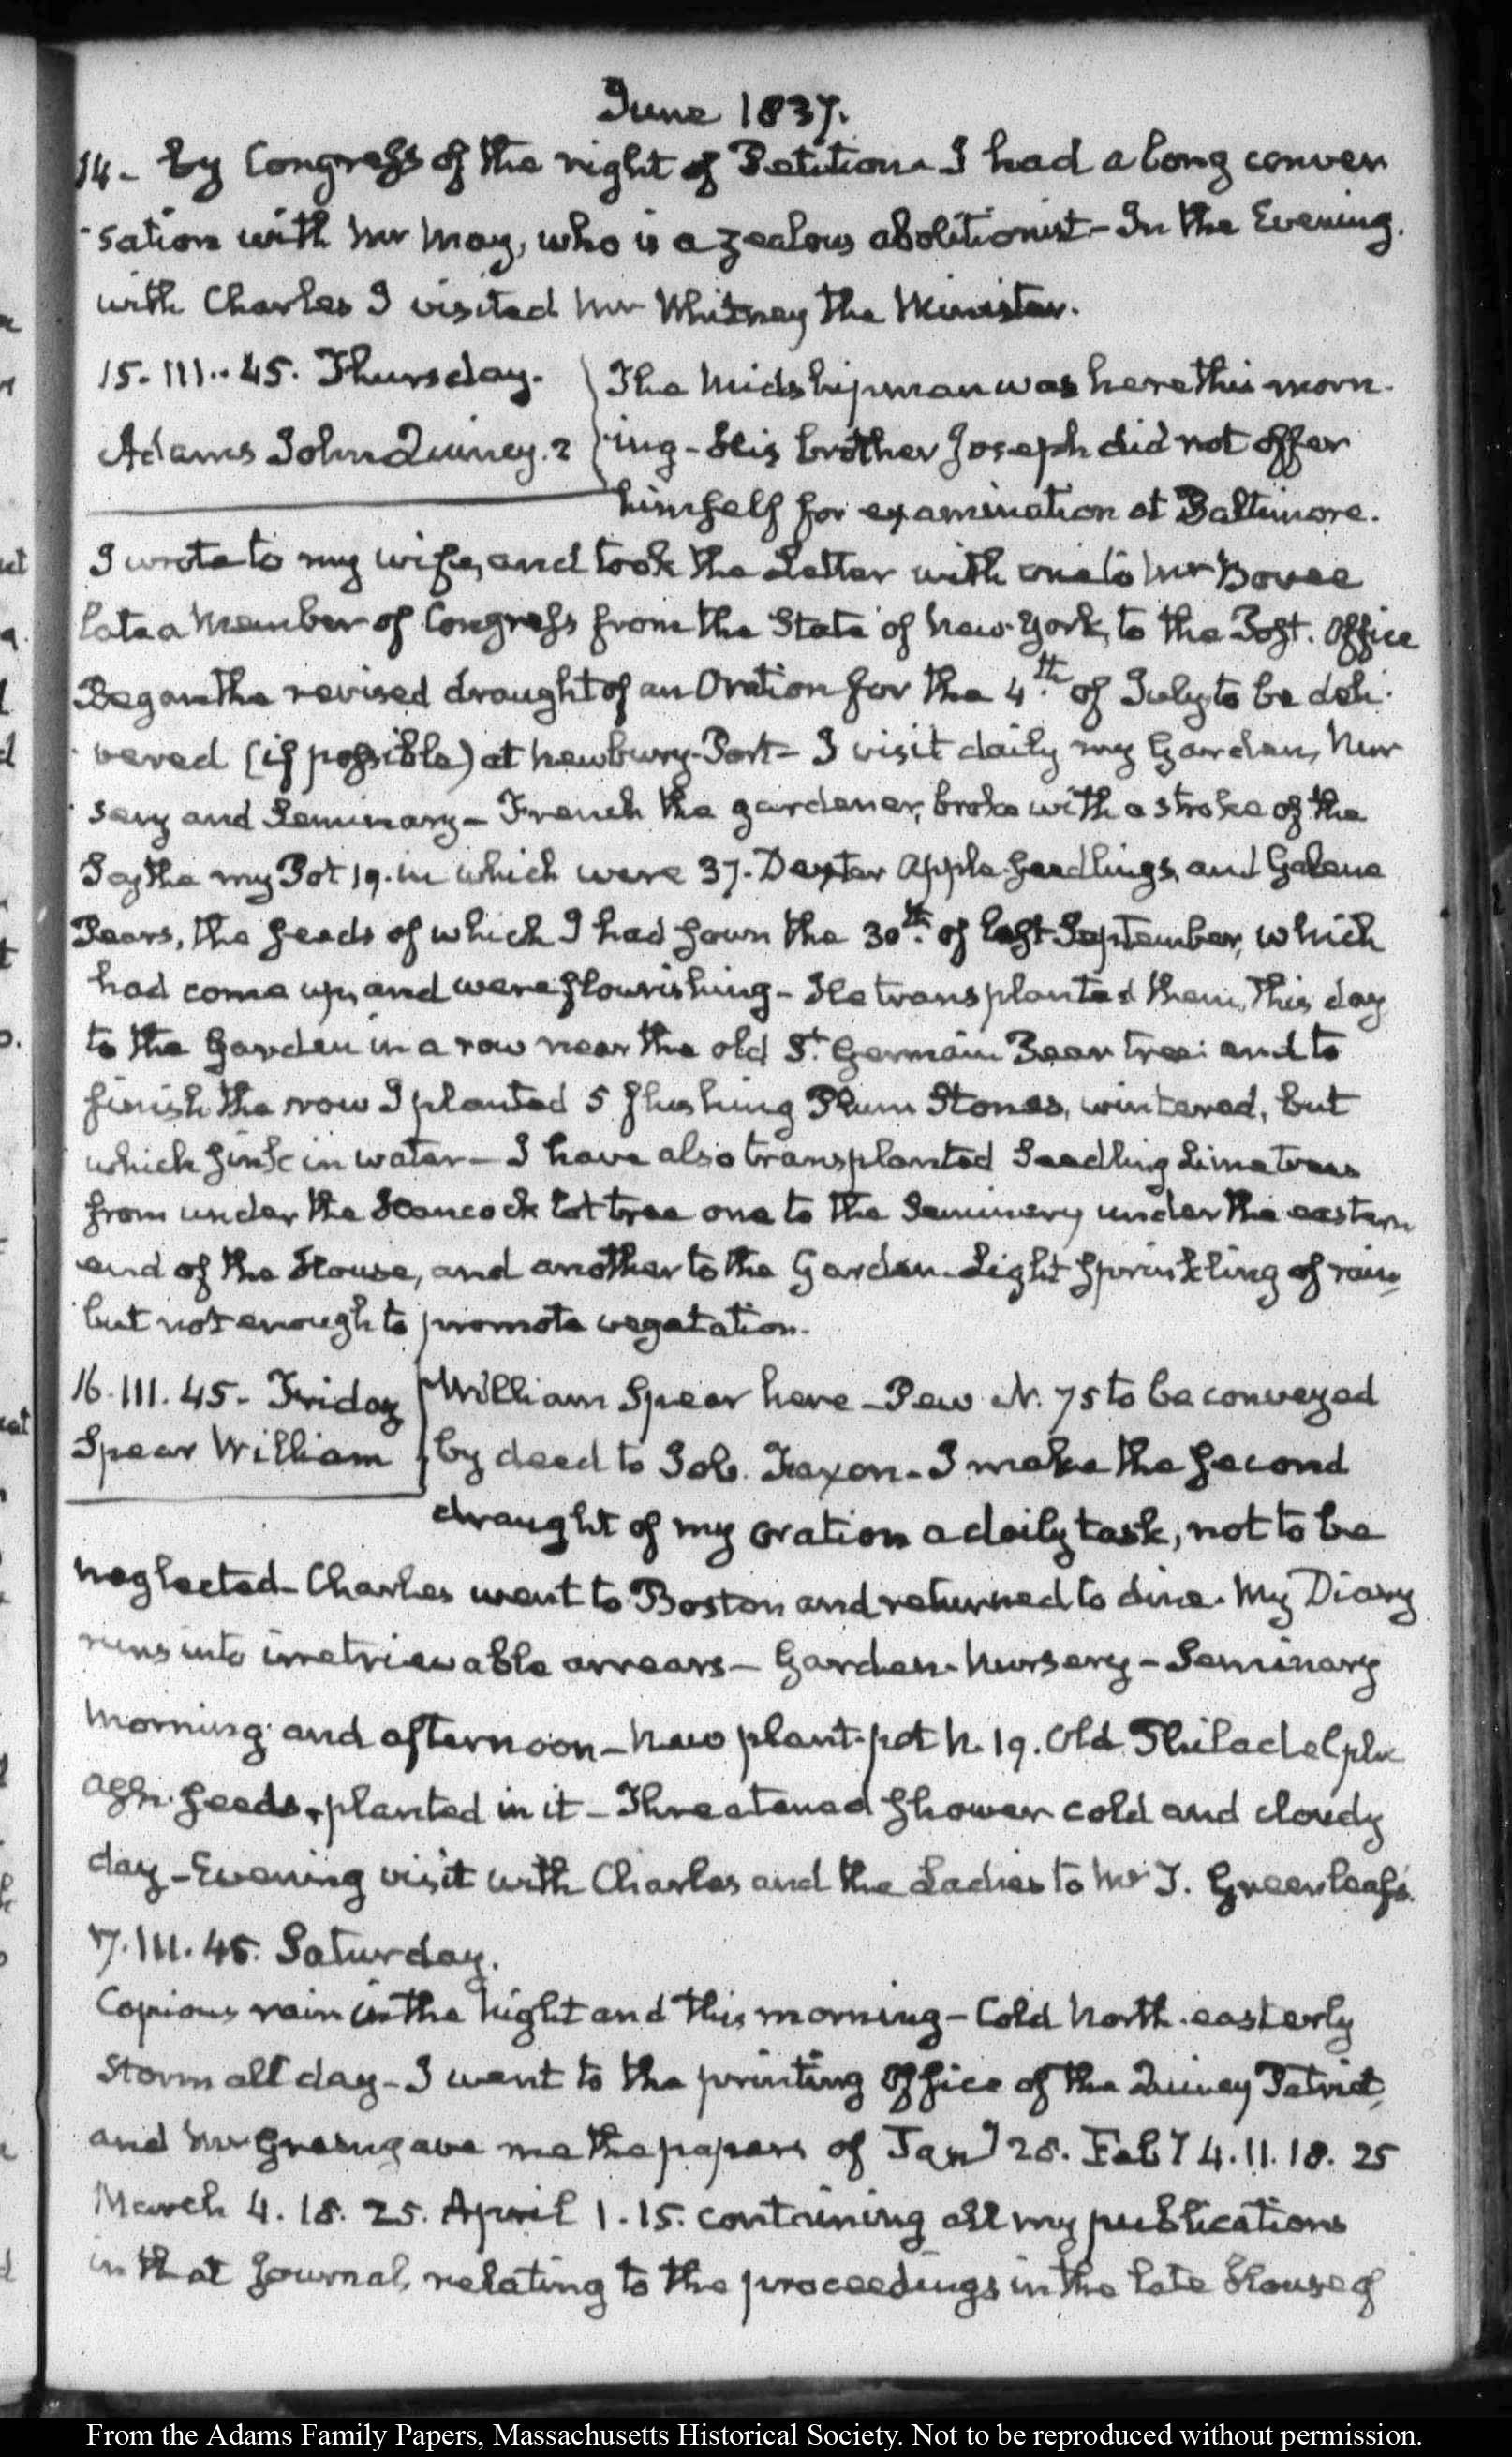 June 1837.
14- by Congress of the right of Petition- I had a long conver
-sation with Mr May, who is a zealous abolitionist- In the Evening,
with Charles I visited Mr Whitney the Minister.
15. III.. 45. Thursday.
Adams John Quincy. 2
The Midshipman was here this morn-
ing- His brother Joseph did not offer
himself for examination at Baltimore.
I wrote to my wife, and took the Letter with one to Mr Bovee
late a Member of Congress from the State of New York, to the Post. Office
Began the revised draught of an Oration for the 4.th of July to be deli-
vered (if possible) at Newbury-Port- I visit daily my Garden, Nur
sery and Seminary- French the gardener, broke with a stroke of the
Scythe my Pot 19. in which were 37. Dexter Apple-seedlings, and Galena
Pears, the seeds of which I had sown the 30th. of last September, which
had come up, and were flourishing- He transplanted them, this day
to the Garden in a row near the old St. Germain Pear tree: and to
finish the row I planted 5 flushing Plum Stones, wintered, but
which sink in water- I have also transplanted Seedling Lime trees
from under the Hancock lot tree one to the Seminary under the eastern
end of the House, and another to the Garden. Light sprinkling of rain,
but not enough to promote vegetation.
16. III. 45- Friday
Spear William
William Spear here- Pew N. 75 to be conveyed
by deed to Job. Faxon- I make the second
draught of my oration a daily task, not to be
neglected- Charles went to Boston and returned to dine. My Diary
runs into irretrievable arrears- Garden- Nursery- Seminary
Morning and afternoon- New plant-pot N. 19. Old Philadelphia
Ash. seeds, planted in it- Threatened shower cold and cloudy
day- Evening visit with Charles and the Ladies to Mr T. Greenleaf's.
17. III. 45. Saturday.
Copious rain in the Night and this morning- Cold North-easterly
Storm all day- I went to the printing Office of the Quincy Patriot,
and Mr Green gave me the papers of Jany 28. Feby 4. 11. 18. 25
March 4. 18. 25. April 1. 15. containing all my publications
in that journal, relating to the proceedings in the late House of
From the Adams Family Papers, Massachusetts Historical Society. Not to be reproduced without permission.